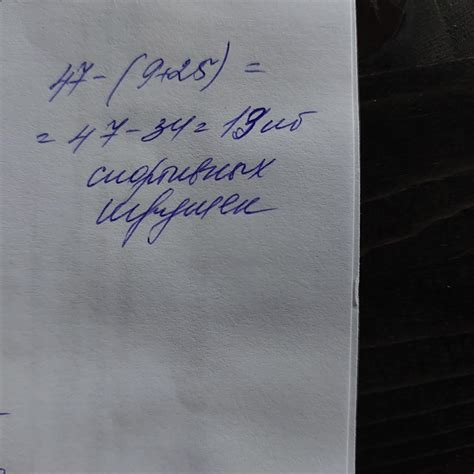 47 - (9+25) =
= 47 - 34 = 13
спортивных
игрушек